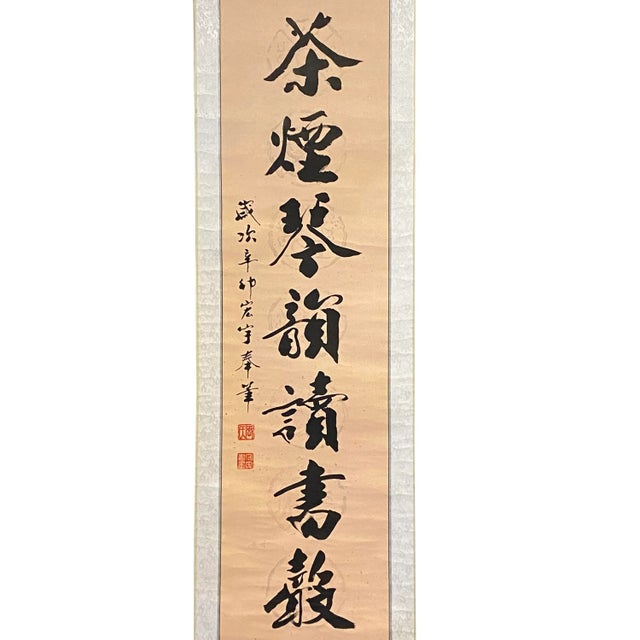 茶煙琴韻讀書聲
歲次辛卯宏宇奉筆